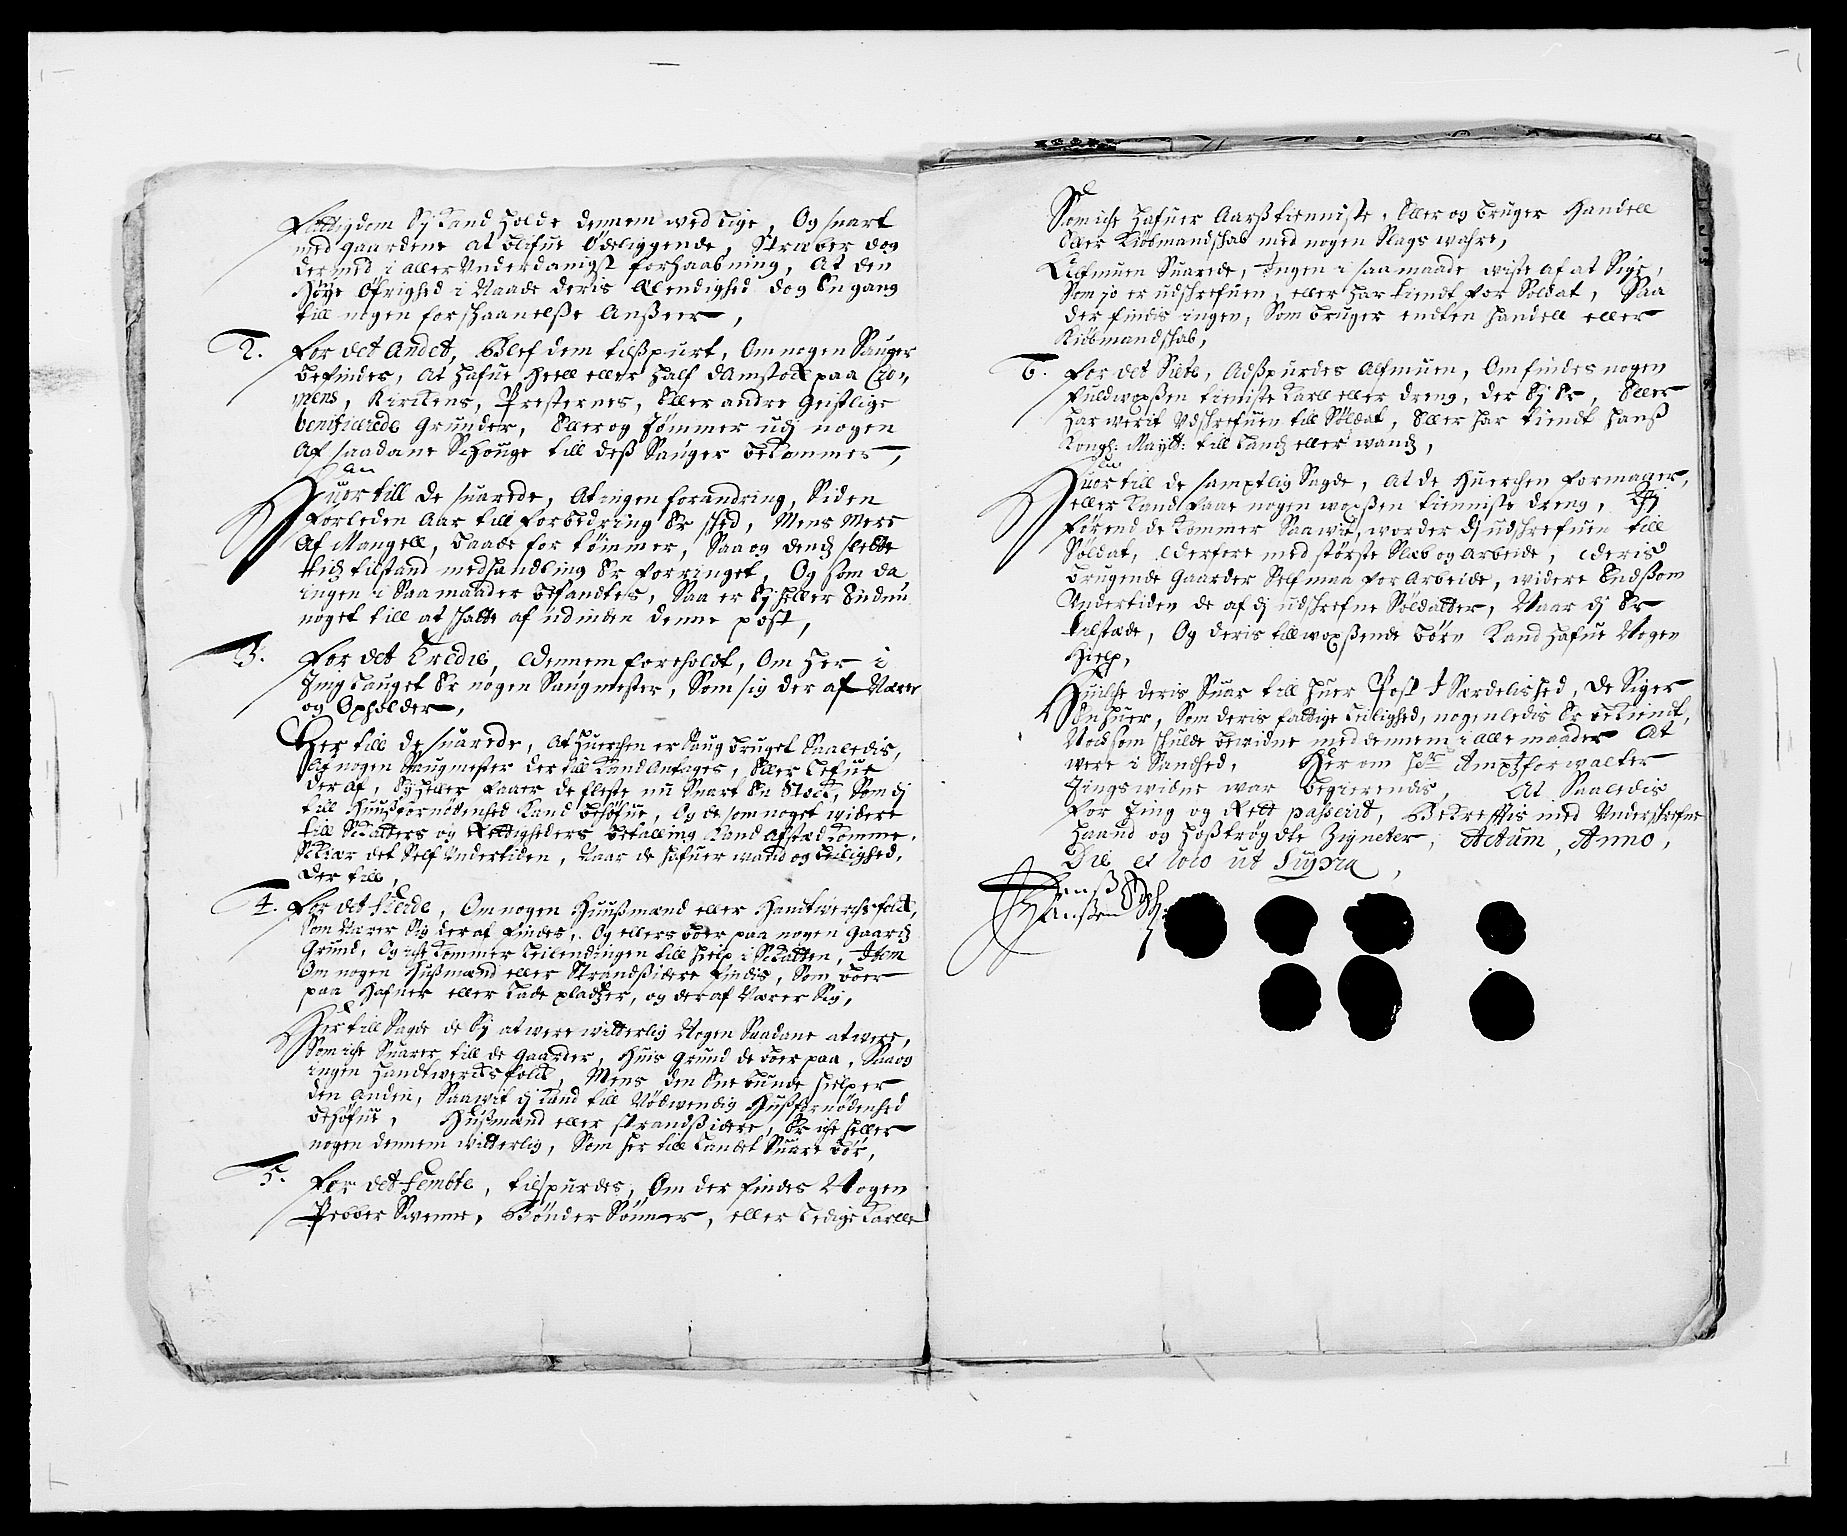 Fattigdom Ej Kand holde dennem ved lige, Og snart
med gaardene at blifue Ødeliggende, Stræber dog
dermed i aller Underdanigst forhaabning, At den
Høye Øfrighed i Naade deris Elendighed dog Engang
till nogen forschaanelße Anßeer,
2. For det Andet, Blef dem tilspurt, Om nogen Sauger
befindes, At hafue heell eller half damstock paa Cro-
nens, Kirkens, Presternes, Eller andre Geistlige
benificerede Grunder, Eller og tømmer udj nogen
Af saadane Schouge till deß Sauger bekommer,
Huor till de suarede, At ingen forandring, Siden
forleden Aar till forbedring Er sked, Mens Mere
Af Mangell, baade for tømmer, Saa og dend slette
tidz tilstand medhandling Er forringet, Og som da
ingen i Saamaader befandtes, Saa er Ej heller Endnu
noget till at skatte af udinden denne post,
3. For det Tredie, dennem foreholdt, Om her i
Tinglauget Er nogen Saugmester, Som sig der af Nærer
og Opholder,
Her till de suarede, At huerchen er Saug bruget Saaledis,
At nogen Saugmester der till Kand Antages, Eller lefue
der af, Ej heller faaer de fleste nu Snart En Stock, Som dj
till Huußfornødenhed Kand behøfue, Og de som noget widere
till Skatters og Rettigheders betalling Kand afsted komme,
Skiær det Self Undertiden, Naar de hafuer wand og leilighed,
der till,
4. For det Fierde, Om nogen Huußmænd eller Handtwerchsfolck,
Som Nærer Sig der af findes, Og ellers boer paa nogen Gaardz
Grund, Og iche kommer leilendingen till hielp i Skatten, Item
Om nogen Hußmænd eller Strandßidere findis, Som boer
paa Hafner eller lade pladtzer, og der af Nærer Sig,
Her till Sagde de Ej at were witterlig Nogen Saadane at were,
Som iche Suarer till de Gaarder, Huis grund de boer paa, Saa og
ingen Handtwercksfolck, Mens den Ene bunde hielper
den Anden, Saawit dj Kand till Nødwendig Hußfornødenhed
behøfue, Hußmænd eller Strandßidere, Er iche heller
nogen dennem witterlig, Som her till Landet Suare bør,
5. For det Fembte, tilspurdes, Om der findes Nogen
Pebber Svenne, Bønder Sønner, eller ledige Karlle
Som iche hafuer Aarßtienniste, Eller og bruger Handell
Eller Kiøbmandschab med nogen Slags wahre,
Allmuen Suarede, Ingen i saamaade wiste af at Sige,
Som jo er udschrefuen, eller har tiendt for Soldat, Saa
der findes ingen, Som bruger enten handell eller
Kiøbmandschab,
6. For det Siette, Adspurdes Allmuen, Om findes nogen
fuldwoxßen tieniste Karll eller dreng, der Ej Er, Eller
har werit Udschrefuen till Soldat, Eller har tiendt hanß
Kongl: Maytt: till land eller wand,
Huor till de samptlig Sagde, At de Huerchen formager,
eller Kand faae nogen woxßen tienniste dreng, Thj
førend de kommer Saawit, worder dj udschrefuen till
Soldat, derfore med største Slæb og Arbeide, deris
brugende Gaarder Self maa forArbeide, widere End som
Undertiden de af dj udschrefne Soldatter, Naar dj Er
tilstæde, Og deris tillwoxßende børn Kand hafue Nogen
hielp,
Huilche deris Suar till huer Post I Særdelished, de Siger
Enhuer, Som deris fattige leilighed, nogenledis Er bekiendt,
Nocksom skulde bewidne med dennem i alle maader At
were i Sandhed, Her om Hr Amptzforwalter
Tingswidne war begierendis, At Saaledis
for Ting og Rett passerit, Bekreftis med Underschrefne
haand og hoßtrøgdte Zigneter, Actum, Anno,
Die et loco ut Supra,
Jenß
Hanßen